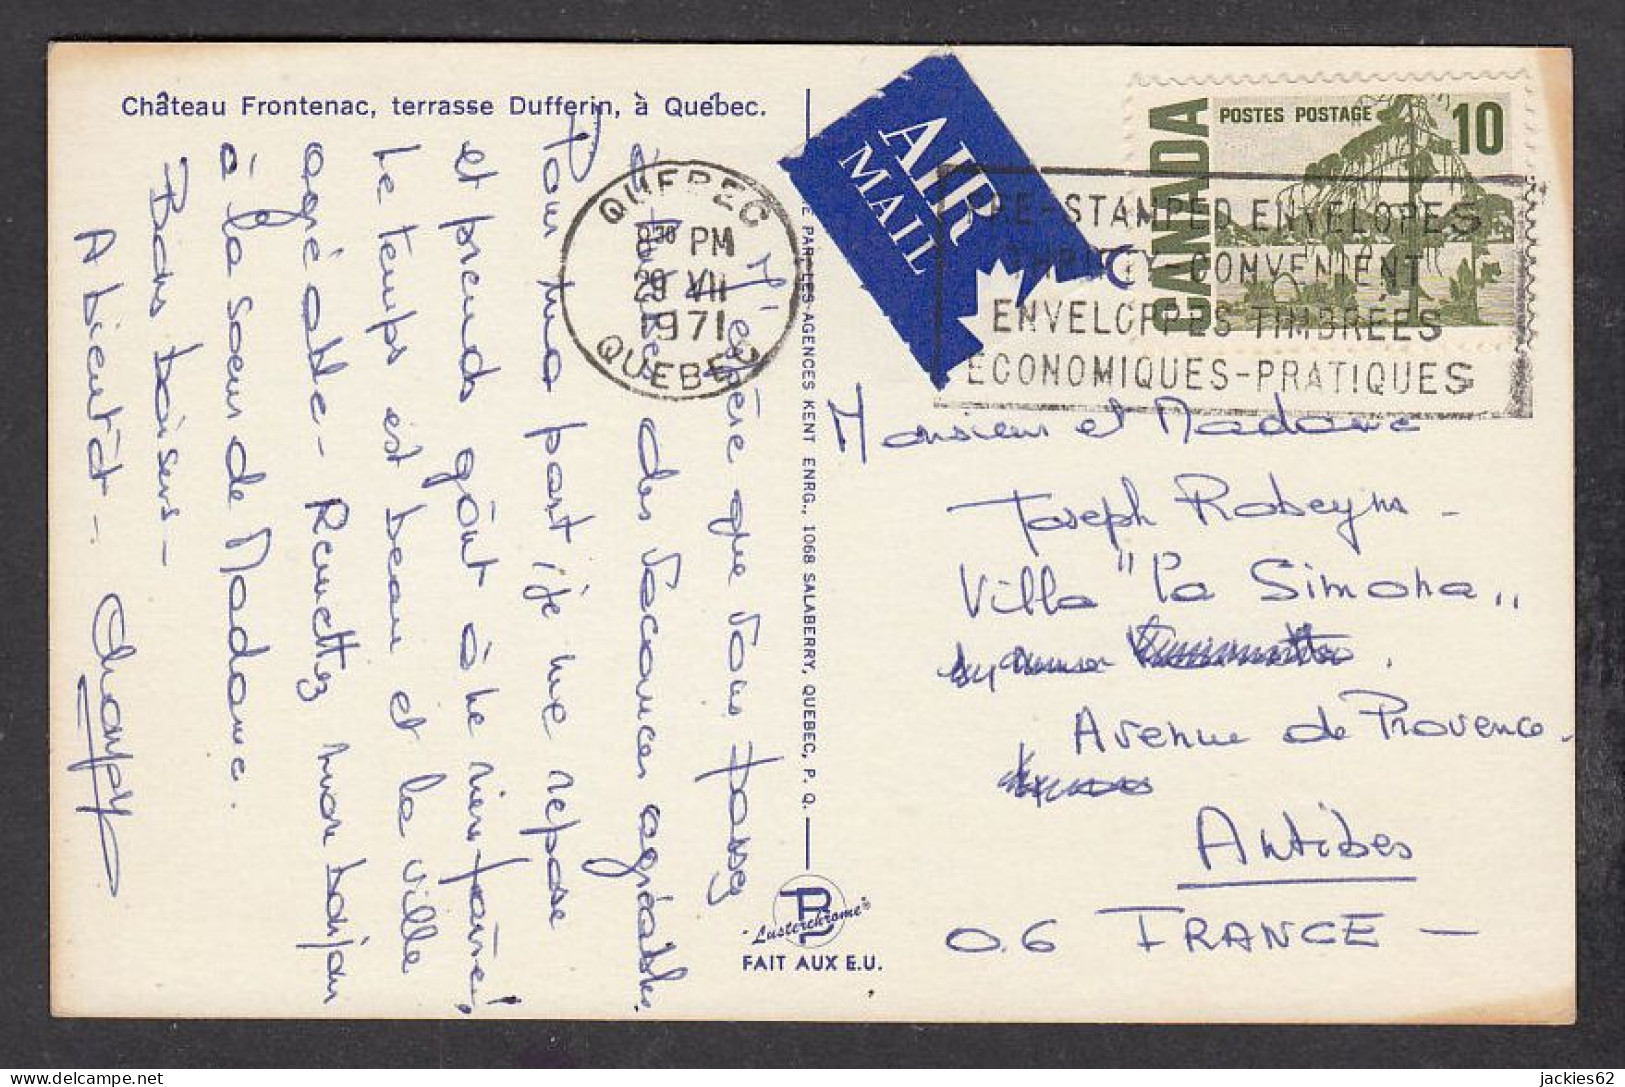 Château Frontenac, terrasse Dufferin, à Québec.
J'espère que vous passez
d'heureuses vacances agréables.
Pour ma part, je me repose
et prends goût à ne rien faire!
Le temps est beau et la ville
agréable - Remettez mon bonjour
à la soeur de Madame.
Bons baisers -
A bientôt -
PAR LES AGENCES KENT ENRG., 1068 SALABERRY, QUEBEC, P. Q.
Lusterchrome
FAIT AUX E.U.
AIR
MAIL
QUEBEC
PM
29 VII
1971
QUEBEC
CANADA
POSTES POSTAGE
10
PRE-STAMPED ENVELOPES
THRIFTY CONVENIENT
ENVELOPPES TIMBRÉES
ECONOMIQUES-PRATIQUES
Monsieur et Madame
Joseph Robeyns -
Villa "La Simona"
Avenue de Provence -
Antibes
06 FRANCE -
jackies62